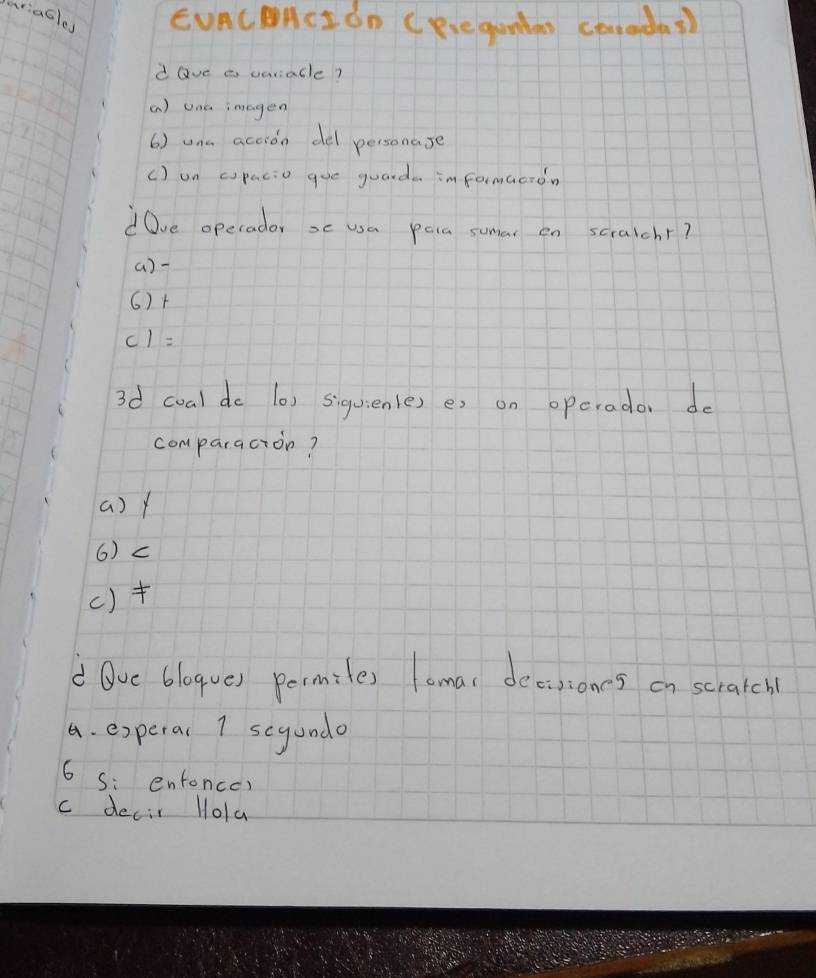 variables
EVALUACIÓN (Preguntas cerradas)
¿Que es variable?
a) una imagen
b) una acción del personaje
c) un espacio que guarda imformación
¿Que operador se usa para sumar en scratchr?
a) -
b) +
c) =
3¿ cual de los siguientes es un operador de
comparación?
a) y
b) <
c) ≠
¿Que bloques permites tomar decisiones en scratchl
a. esperar 1 segundo
b si entonces
c decir Hola